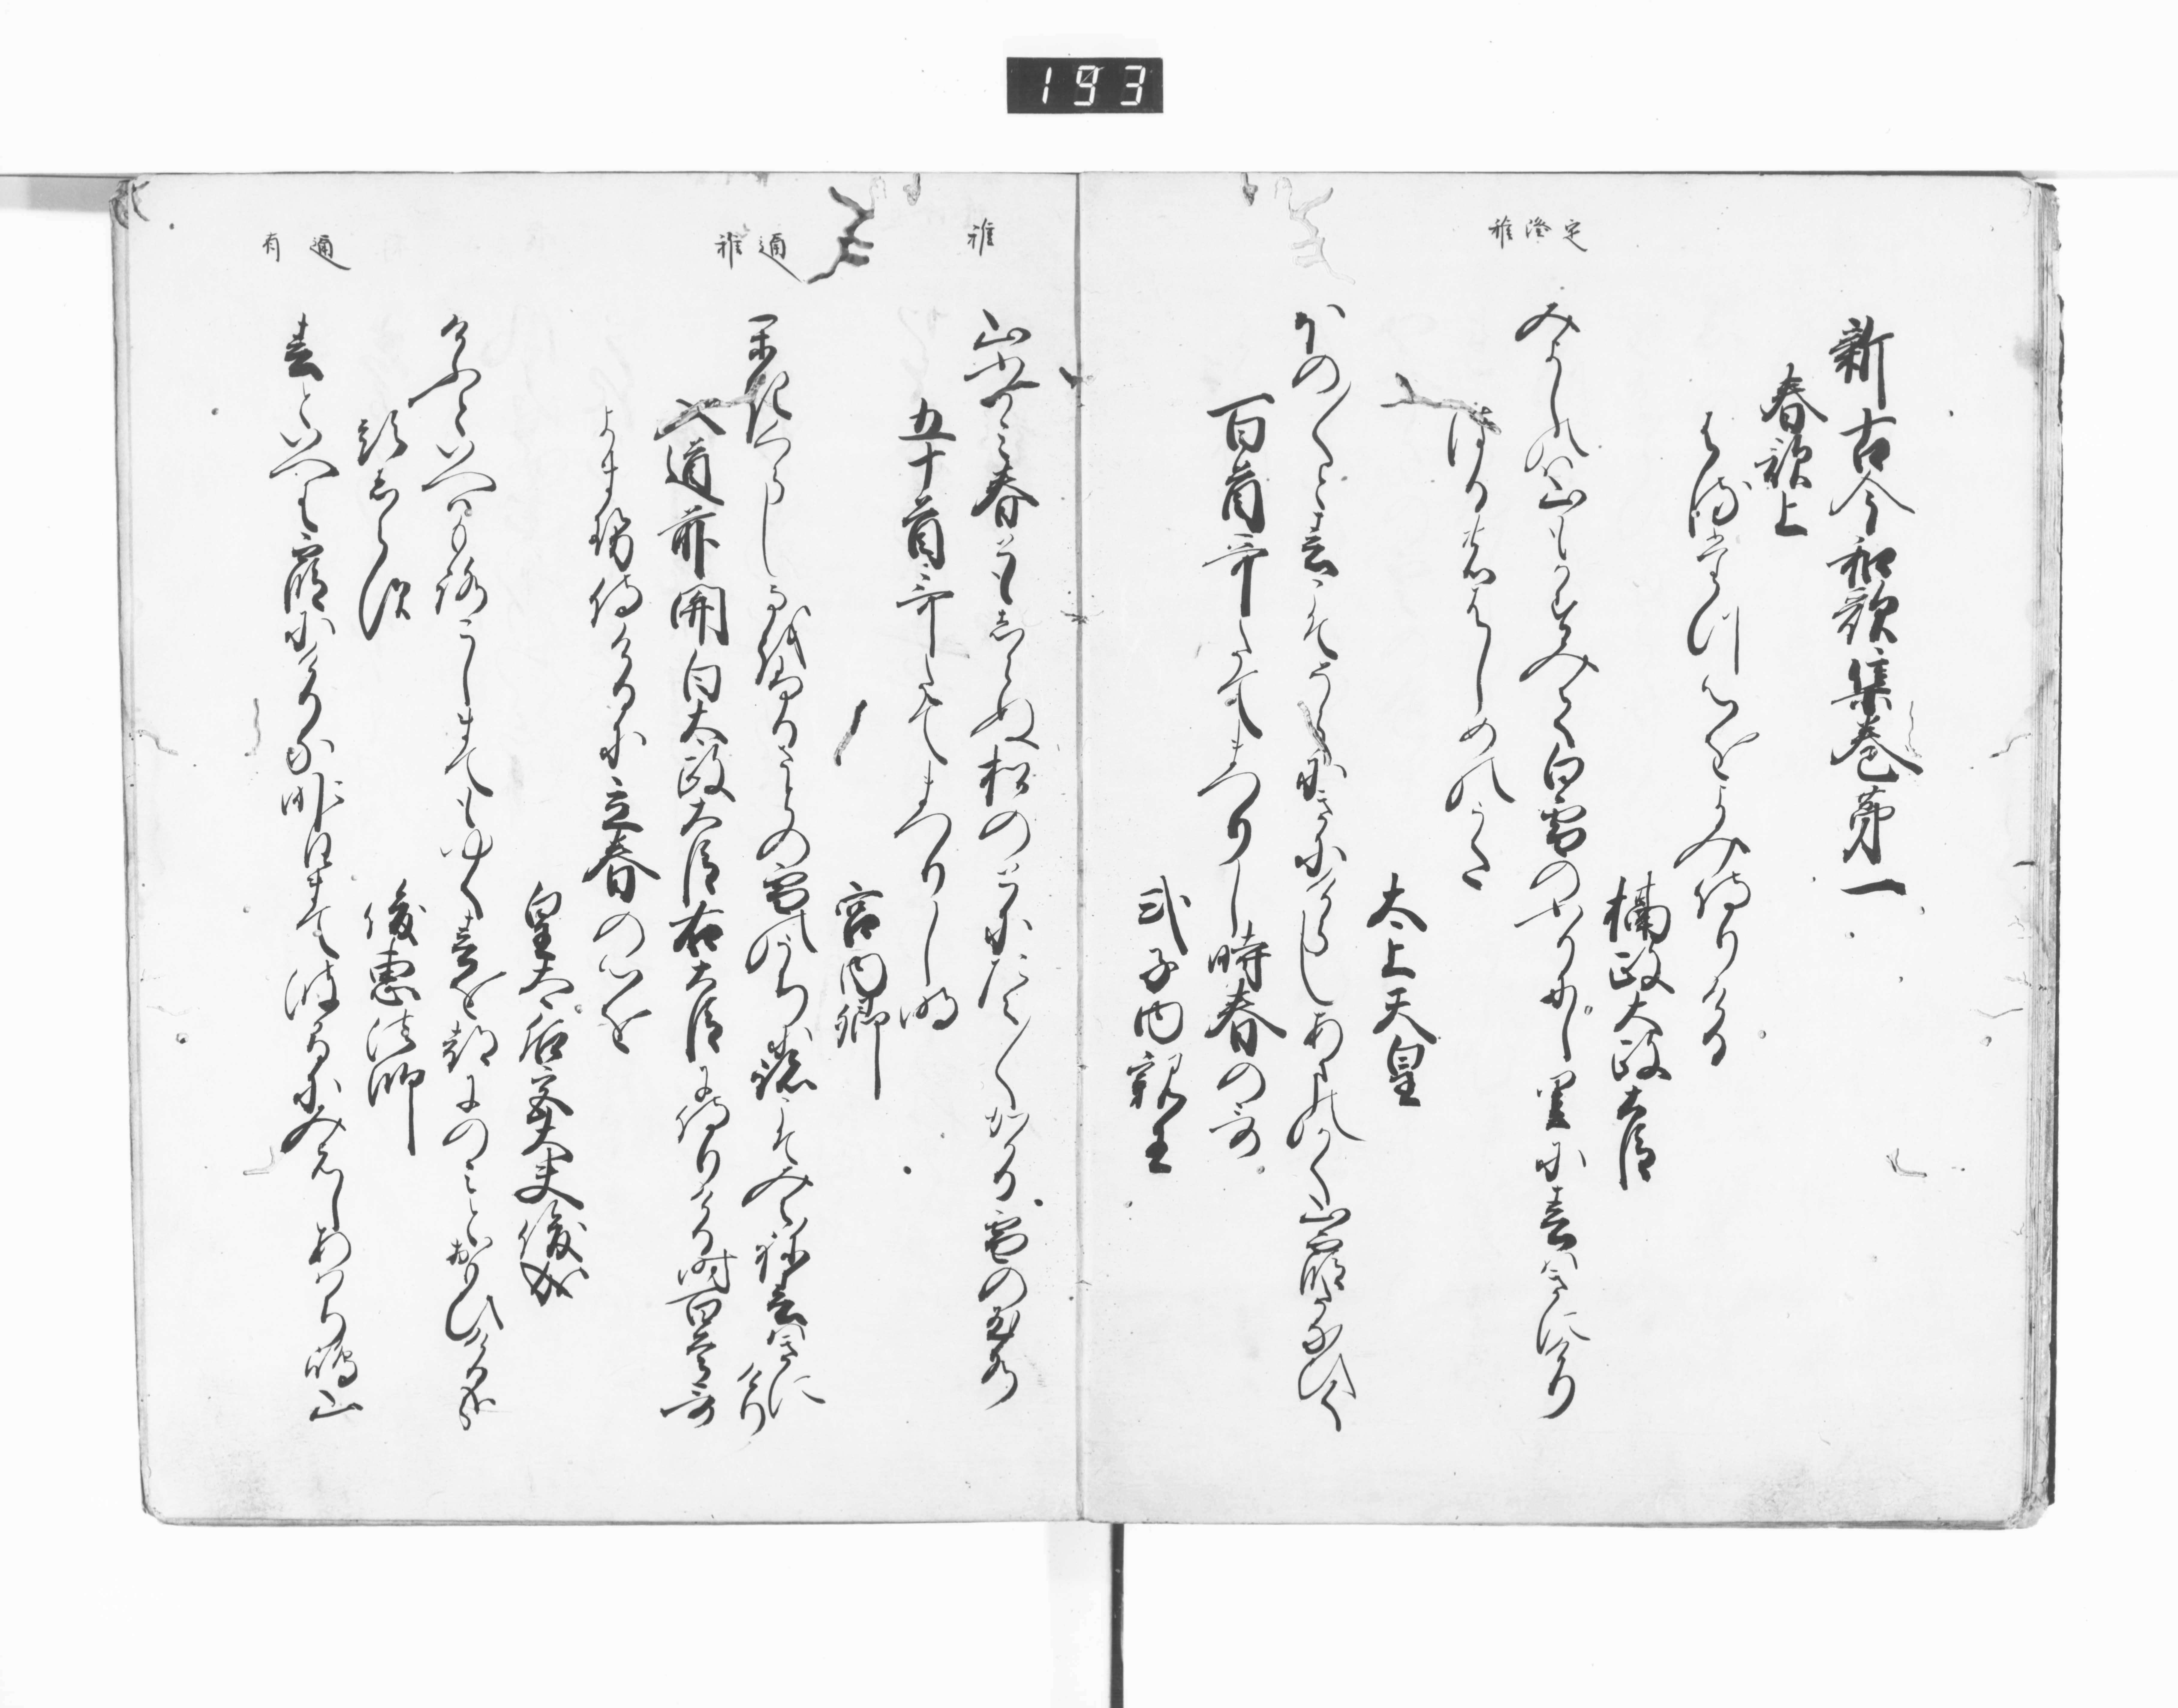 193
定
隆
雅
新古今和歌集巻第一
春歌上
はるたつ心をよみ侍りける
摂政太政大臣
みよしのは山もかすみて白雪のふりにし里に春はきにけり
はるのはしめのうた
太上天皇
ほの〱と春こそ空にきにけらしあまのかく山霞たなひく
百首哥たてまつりし時春の哥
式子内親王
雅
山ふかみ春ともしらぬ松のとにたえ〱かゝる雪の玉水
五十首哥たてまつりし時
宮内卿
通
雅
かきくらし猶ふるさとの雪のうちに跡こそみえね春はきにけり
入道前関白太政大臣右大臣に侍りける時百首哥
よませ侍けるに立春の心を
皇太后宮大夫俊成
けふといへはもろこしまてもゆく春を都にのみとおもひけるかな
題しらす
俊恵法師
通
有
春といへは霞にけりな昨日まて波まにみえしあはち嶋山